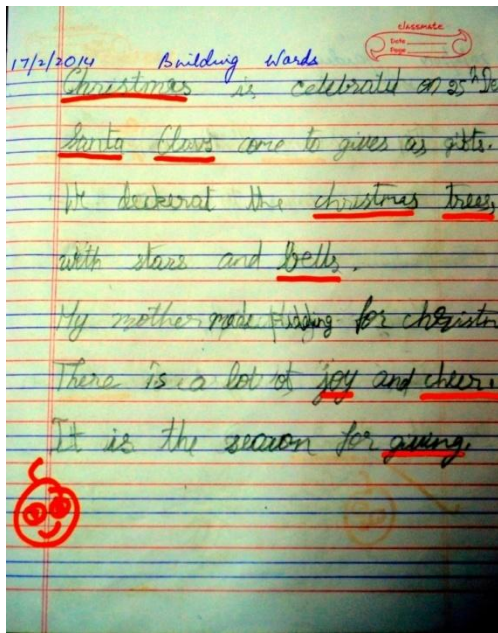 classmate
Date
Page
17/2/2014 Building Words
Christmas is celebrated on 25th De
Santa Claus come to gives as gifts.
We deckerat the christmas trees,
with stars and bells.
My mother made pudding for christm
There is a lot of joy and cheer.
It is the season for giving.